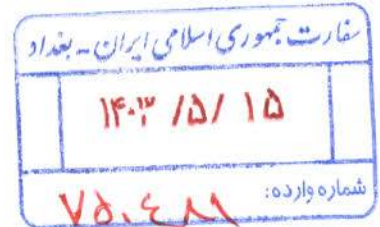 سفارت جمهوری اسلامی ایران - بغداد
۱۴۰۳ /۵/ ۱۵
شماره وارده:
۷۵۰۴۸۸